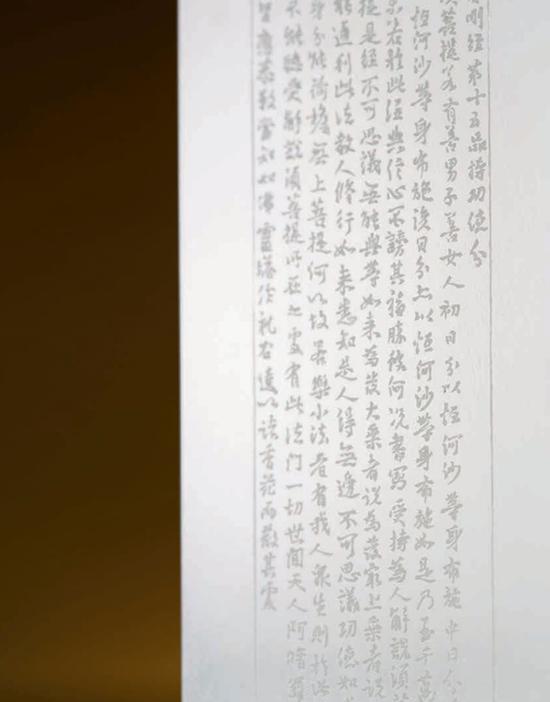 明經第十五品持功德分
須菩提若有善男子善女人初日分以恒河沙等身布施中日分
恒河沙等身布施後日分亦以恒河沙等身布施如是乃至千萬
若於此經典信心不謗其福勝彼何況書寫受持為人解說須
提是經不可思議無能與等如来為發大乘者说為發最上乘者说
能通利此法教人修行如来悉知是人得無邊不可思議功德如
身分能荷擔無上菩提何以故若樂小法者有我人衆生則於此
不能聽受解說須菩提所在之處有此法门一切世間天人阿脩羅
皆應恭敬當知如佛靈塔作礼右遶以諸香花而散其處